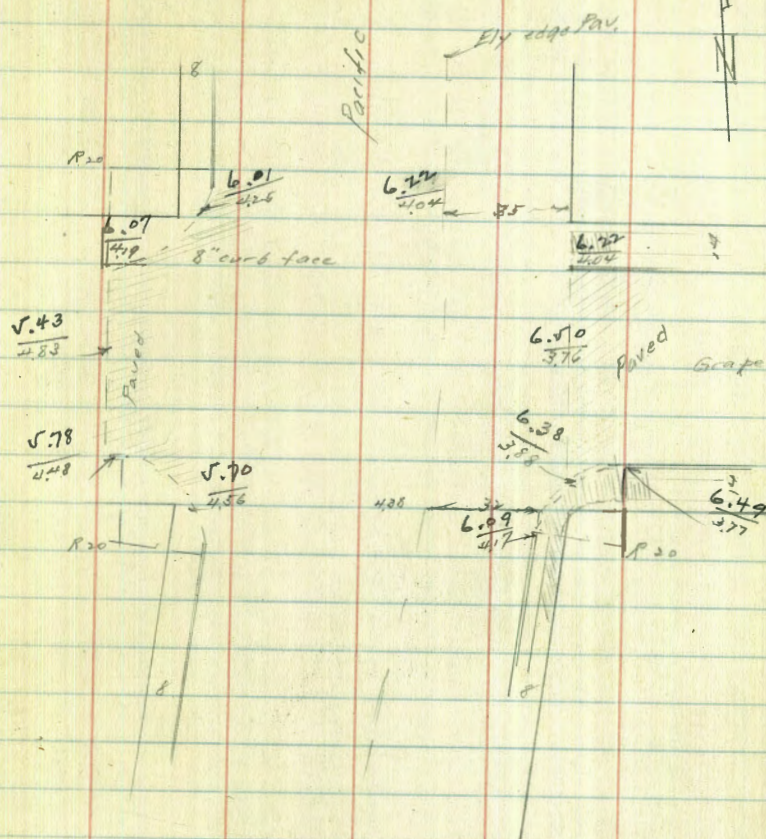 Ely edge Pav.
Pacific
N
8
R 20
6.01
4.25
6.22
4.04
35
6.07
4.19
8" curb face
6.22
4.04
5.43
4.83
Paved
6.50
3.76
Paved
Grape
5.78
4.48
5.70
4.56
6.38
3.88
4.28
32
6.09
4.17
6.49
3.77
R 20
R 20
8
8